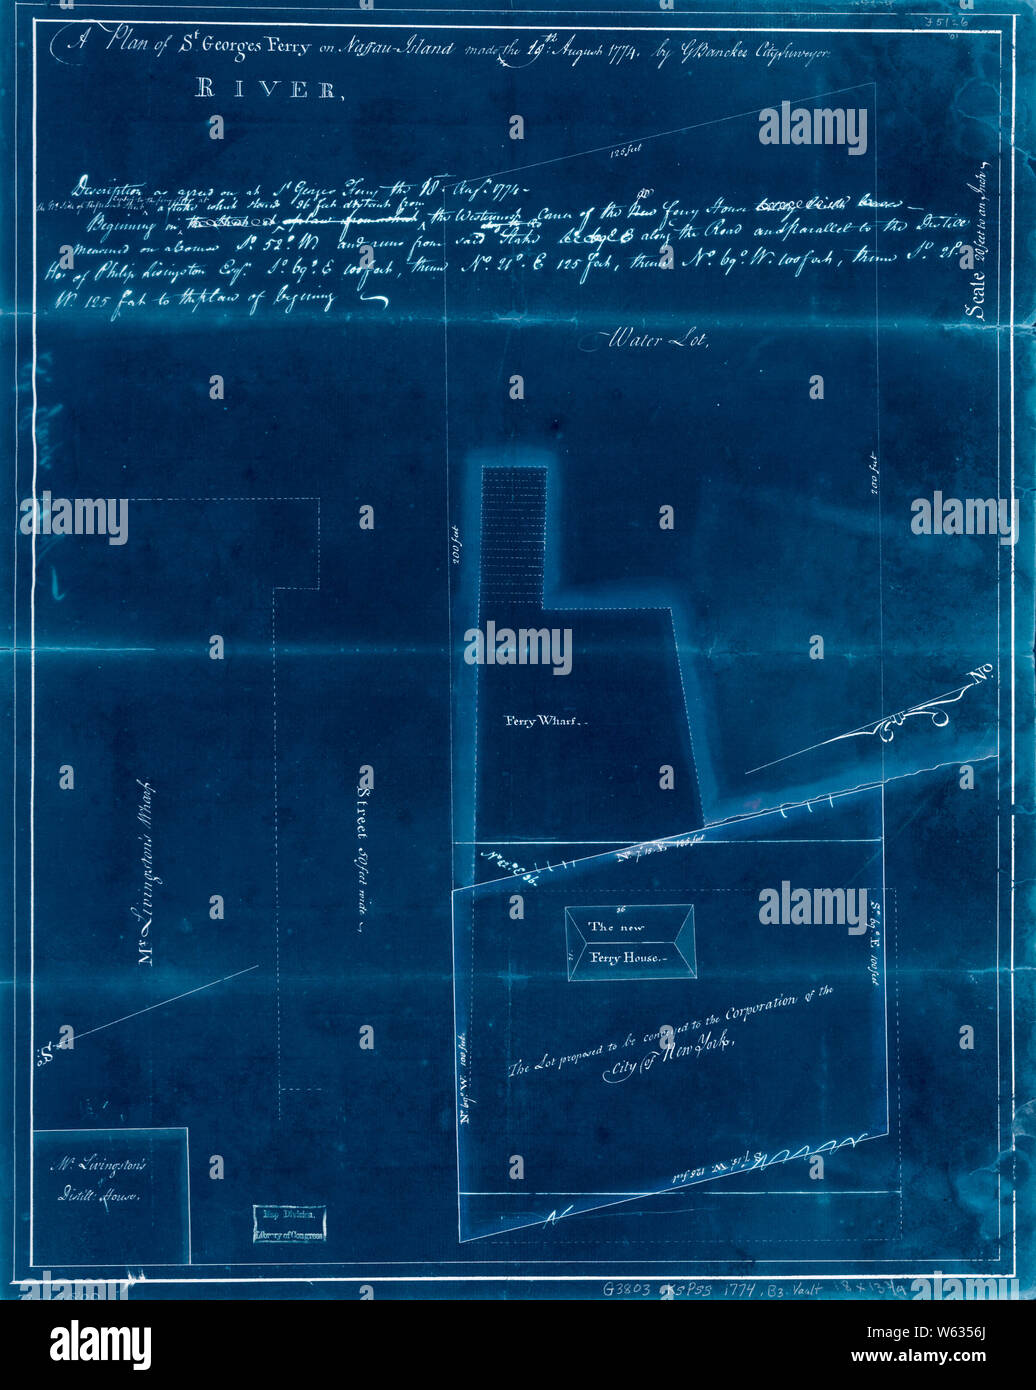 75126
A Plan of St. Georges Ferry on Nassau-Island made the 19th. August 1774. by GBancker City Surveyor.
RIVER,
125 feet
Description as agreed on at St Georges Ferry the 18 Augt. 1774 -
Beginning on a stake which stands 36 feet distant from the Westermost Corner of the New Ferry House
measured on a Course So. 52o. W. and runs from said Stake along the Road and parallel to the Distill
Ho. of Philip Livingston Esqr. So. 69o. E 100 feet, thence No. 21o. E 125 feet, thence No. 69o. W. 100 feet, thence So. 21o.
W. 125 feet to the place of begining
Scale 20 feet to an Inch
Water Lot,
200 feet
200 feet
Ferry Wharf.-
No.
Mr. Livingston's Wharf
Street 50 feet wide
125 feet
So. 69o. E. 100 feet
36
The new
Ferry House.-
The Lot proposed to be conveyed to the Corporation of the
City of New York,
No. 69o. W. 100 feet.
So.
W. 125 feet
Mr. Livingston's
Distill: House.
Map Division,
Library of Congress
G3803 .K5P53 1774 .B3 Vault
alamy
a
Image ID: W6356J
www.alamy.com